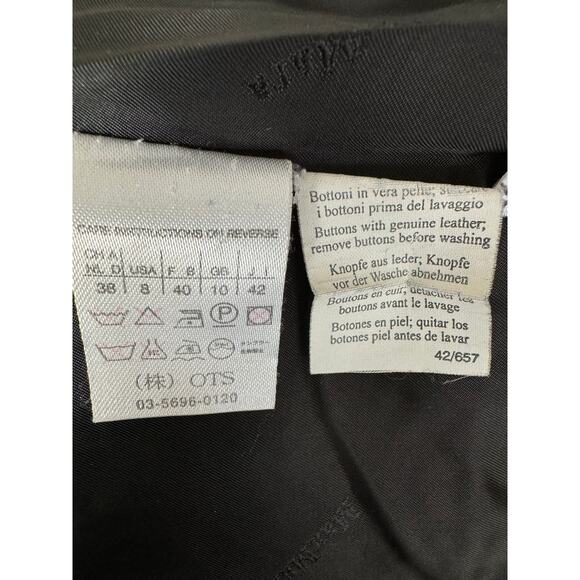 CARE INSTRUCTIONS ON REVERSE
CH A
NL D USA F B GB J I
38 8 40 10 42
P
(株) OTS
03-5696-0120
Bottoni in vera pelle;
i bottoni prima del lavaggio
Buttons with genuine leather;
remove buttons before washing
Knopfe aus leder; Knopfe
vor der Wasche abnehmen
Boutons en cuir; détacher les
boutons avant le lavage
Botones en piel; quitar los
botones piel antes de lavar
42/657